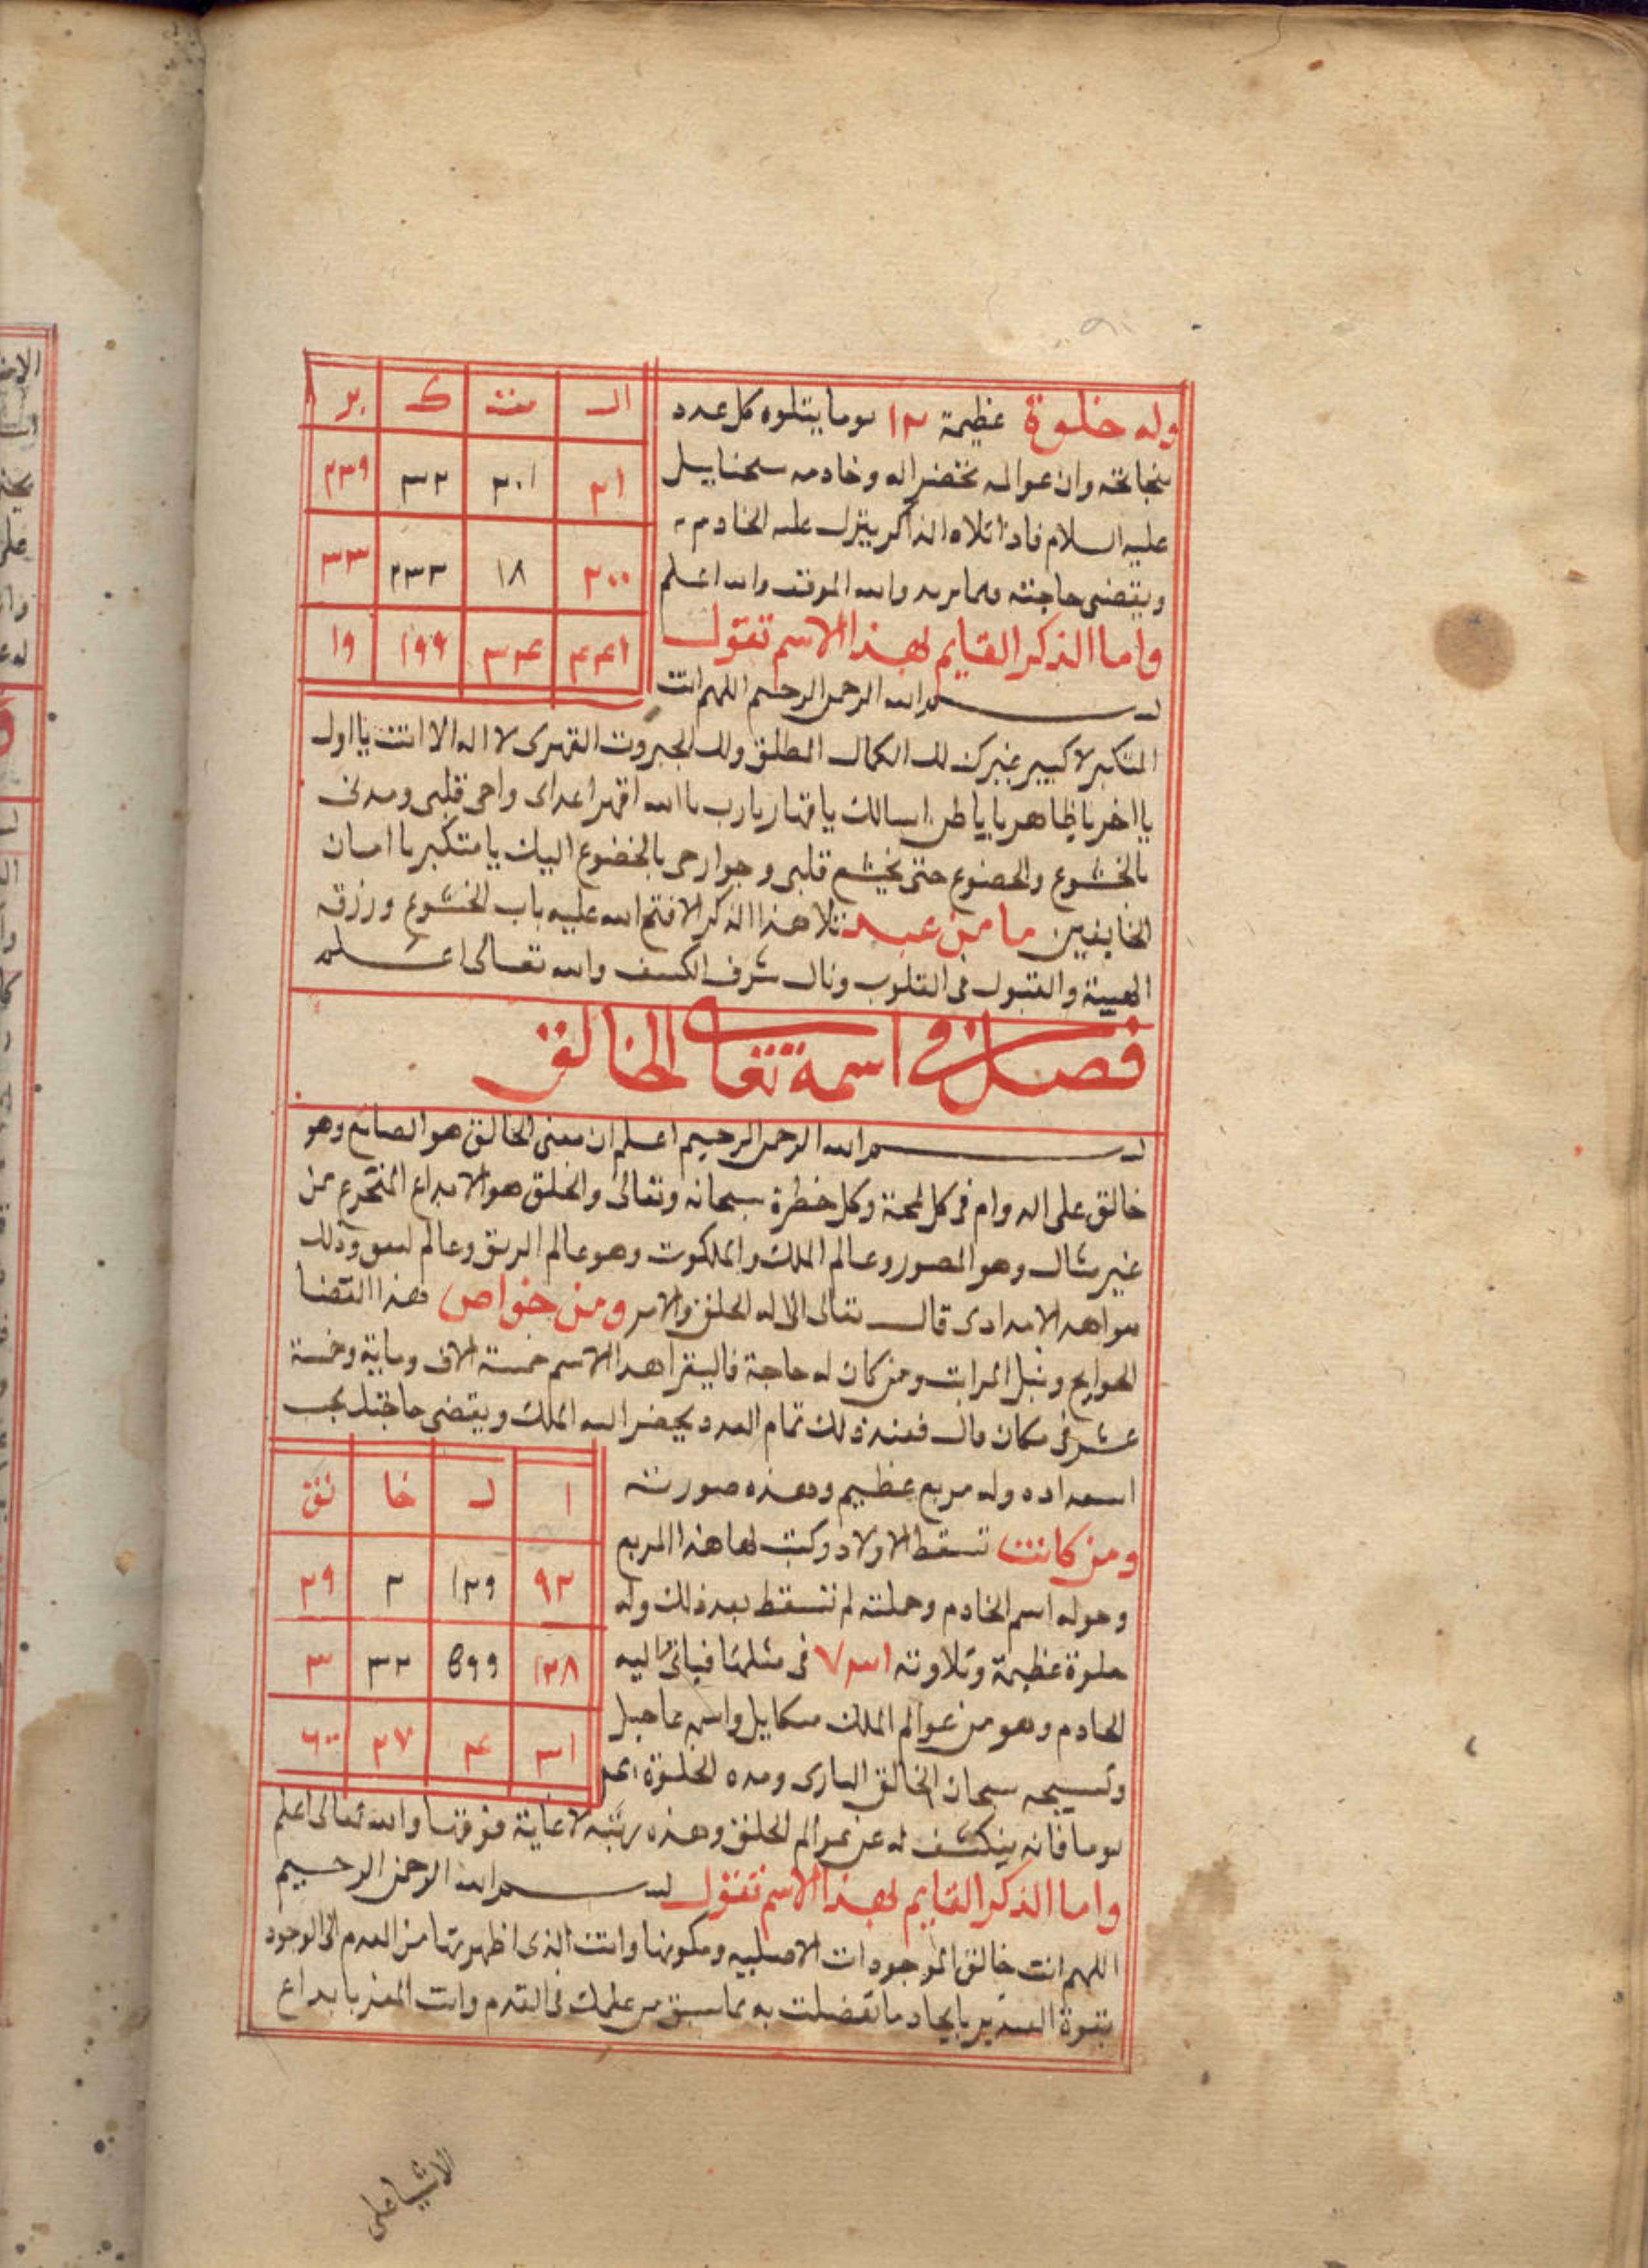 وله خلوة عظيمة ١٢ يوما يتلوه كل عدد
وان عوالمه تحضر اله وخادمه
عليه السلام فاذا تلاه الذاكر ينزل عليه الخادم
ويقضى حاجته مما يريد والله الموفق والله اعلم
واما الذكر القايم لهذا الاسم تقول
بسم الله الرحمن الرحيم اللهم انت
الـ | متـ | كـ | بر
٢١ | ٢٠١ | ٣٢ | ٢٣٩
٢٠٠ | ١٨ | ٢٣٣ | ٣٣
٤٤١ | ٣٤ | ١٩٩ | ١٩
المتكبر لا كبير غيرك لك الكمال المطلق ولك الجبروت القهرى لا اله الا انت يا اول
يا اخر يا ظاهر يا باطن اسالك يا قهار يا رب يا الله اقهر اعداى واحى قلبى وبدنى
بالخشوع والخضوع حتى يخشع قلبى وجوارحى بالخضوع اليك يا متكبر يا امان
الخايفين ما من عبد تلا هذا الذكر الا فتح الله عليه باب الخشوع ورزقه
الهيبة والقبول فى القلوب ونال شرف الكشف والله تعالى اعلم
فصل فى اسمه تعالى الخالق
بسم الله الرحمن الرحيم اعلم ان معنى الخالق هو الصانع وهو
خالق على الدوام فى كل لمحة وكل خطرة سبحانه وتعالى والخلق هو الابداع المخترع من
غير مثال وهو المصور وعالم الملك والملكوت وهو عالم الرتق وعالم وذلك
قال تعالى الا له الخلق والامر ومن خواص هذا القضا
الحوايج ونيل المراتب ومن كان له حاجة فاليقرا هذا الاسم خمسة الاف وماية وخمسة
عشر فى مكان خال فعند ذلك تمام العدد يحضر اليه الملك ويقضى حاجته بحسب
استعداده وله مربع عظيم وهذه صورته
ومن كانت تسقط الاولاد وكتب لها هذا المربع
وحوله اسم الخادم وحملته لم تسقط بعد ذلك وله
خلوة عظيمة وتلاوته ٧٣١ فى مثلها فياتى اليه
الخادم وهو من عوالم الملك ميكاييل واسمه
وتسبيحه سبحان الخالق البارى ومده الخلوة
ا | لـ | خا | لق
٩٢ | ١٢٩ | ٢ | ٢٩
١٢٨ | 599 | ٣٢ | ٣
٣١ | ٤ | ٢٧ | ٦٠٠
يوما فانه ينكشف له عن عوالم الخلق وهذه رتبه لا غاية فوقها والله تعالى اعلم
واما الذكر القايم لهذا الاسم تقول بسم الله الرحمن الرحيم
اللهم انت خالق الموجودات الاصليه ومكونها وانت الذى اظهرتها من العدم الى الوجود
بقوة التدبير بايجاد ما تفضلت به بما سبق من علمك فى القدم وانت بابداع
الاشيا على